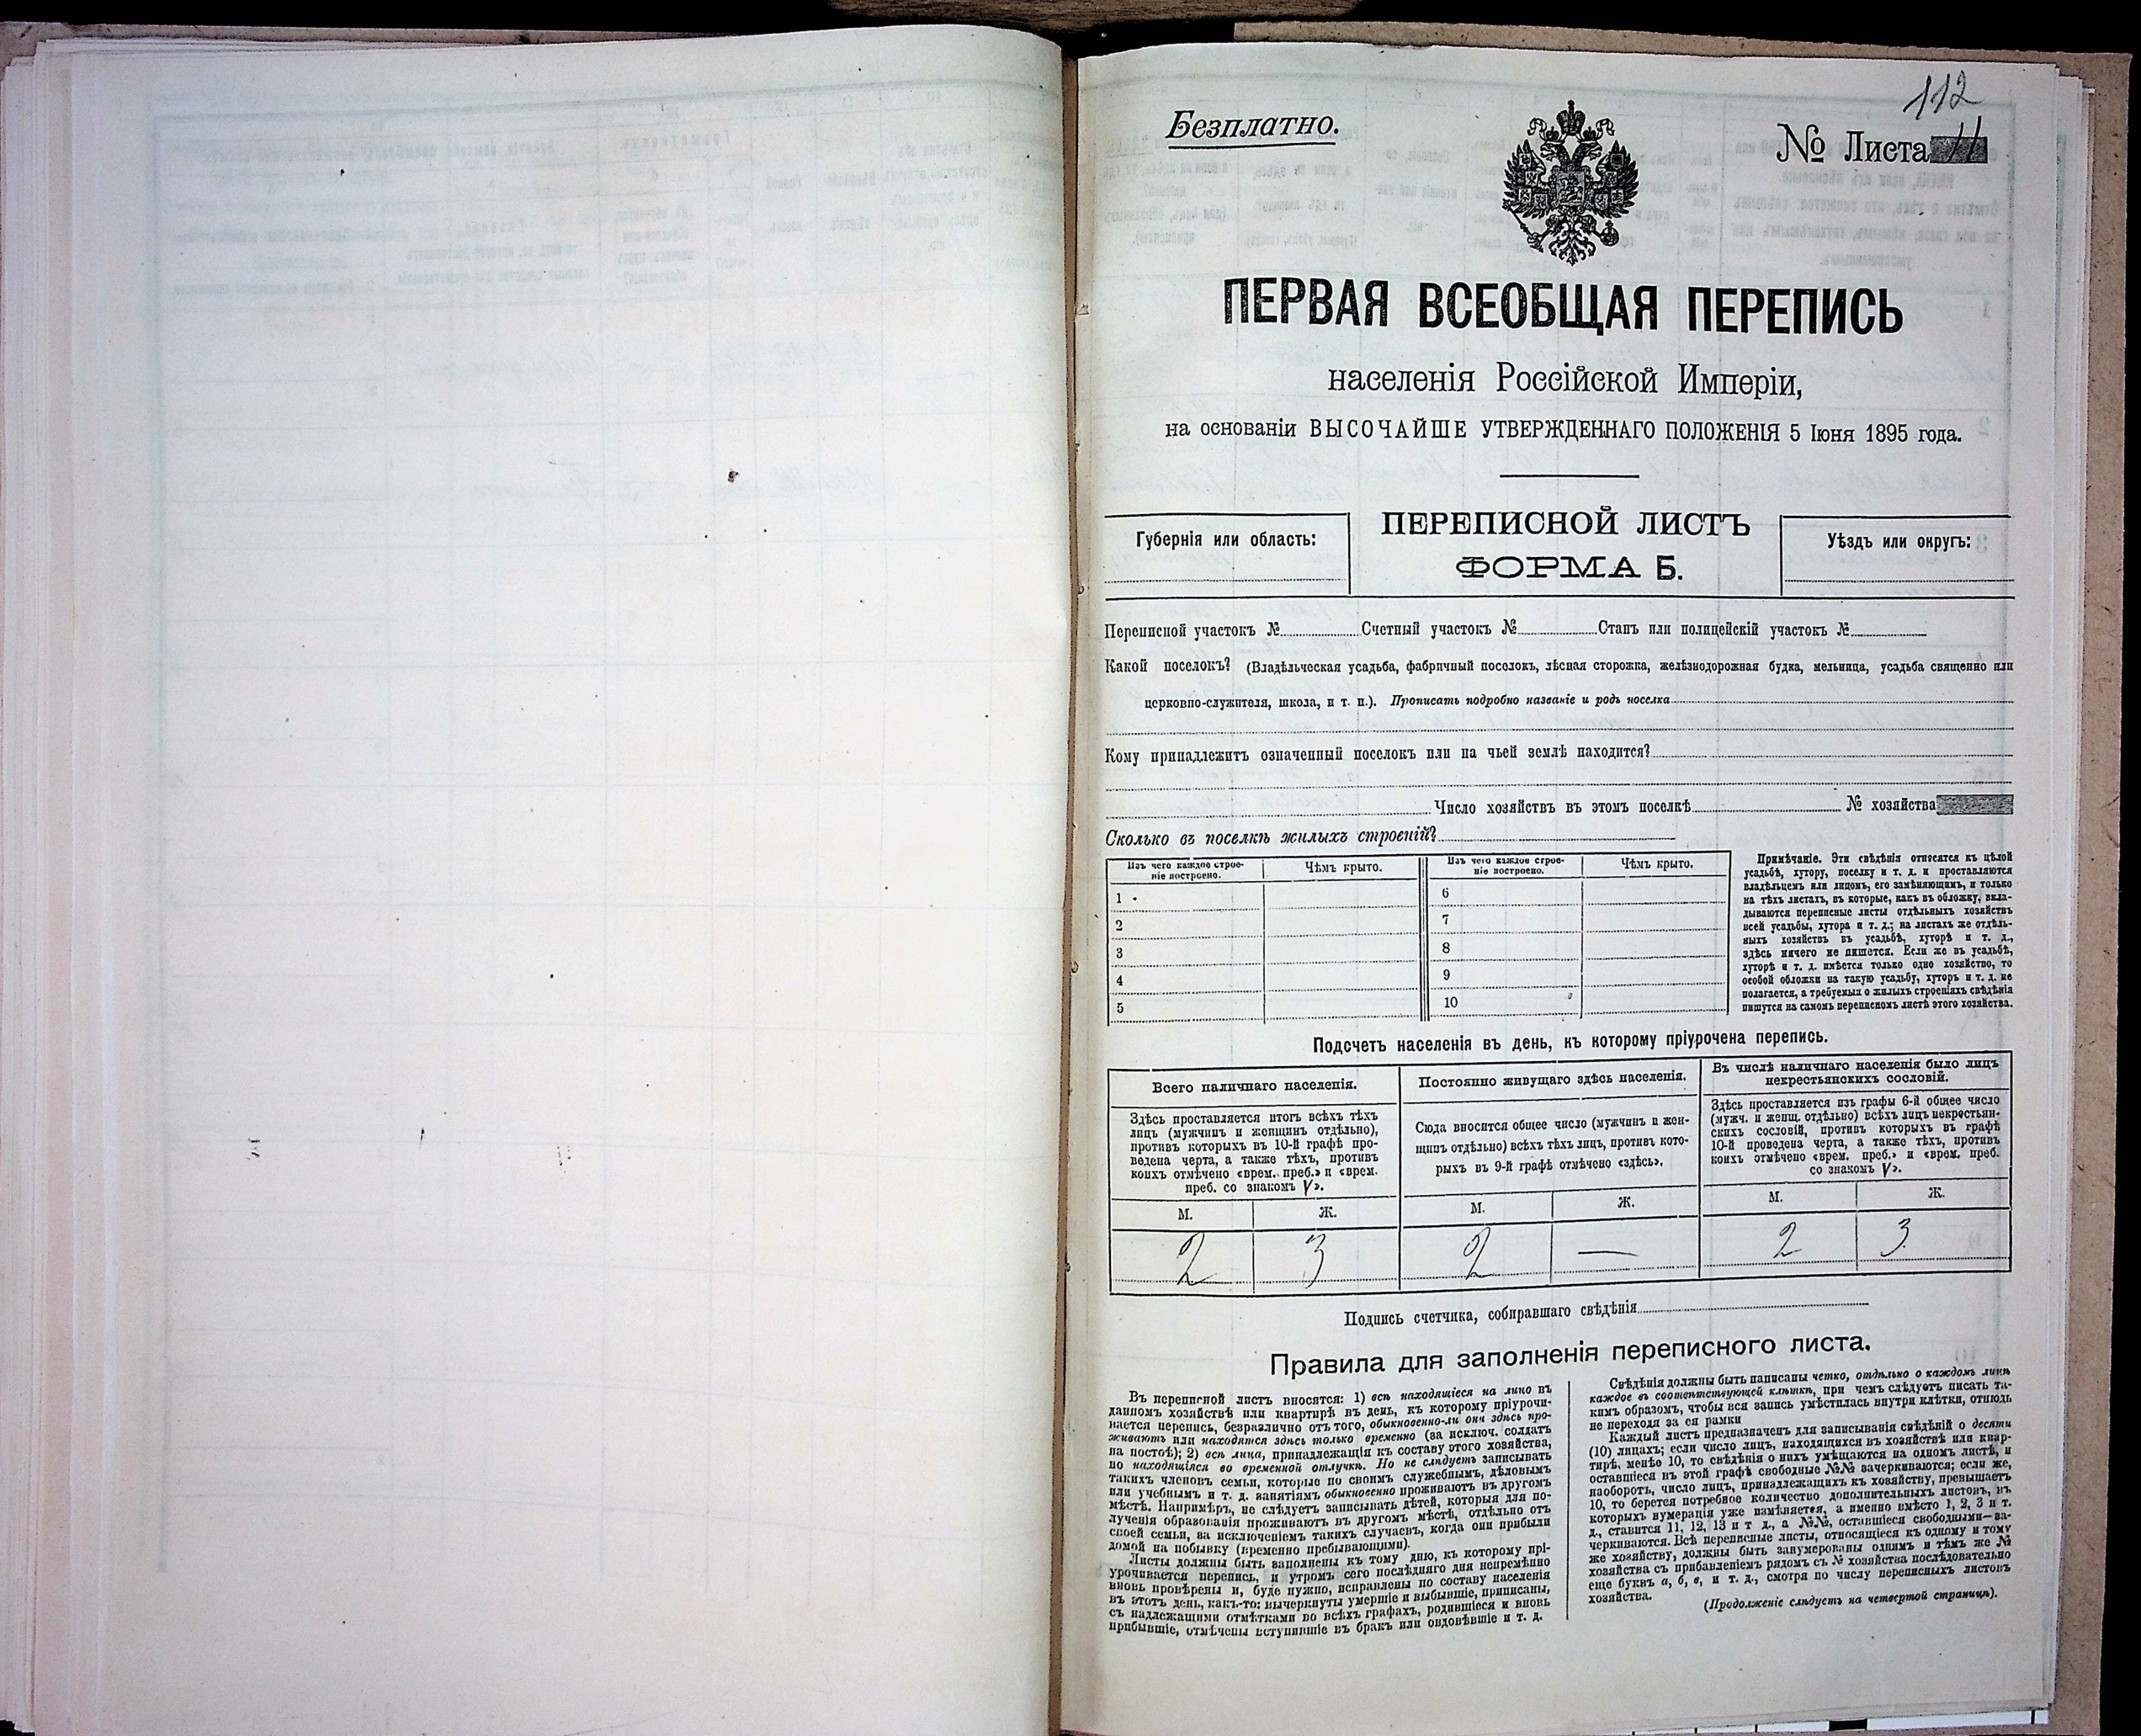 112
Безплатно.
№ Листа 11
ПЕРВАЯ ВСЕОБЩАЯ ПЕРЕПИСЬ
населенія Россійской Имперіи,
на основаніи ВЫСОЧАЙШЕ УТВЕРЖДЕННАГО ПОЛОЖЕНІЯ 5 Іюня 1895 года.
Губернія или область:
ПЕРЕПИСНОЙ ЛИСТЪ
ФОРМА Б.
Уѣздъ или округъ:
Переписной участокъ № Счетный участокъ № Станъ или полицейскій участокъ №
Какой поселокъ? (Владѣльческая усадьба, фабричный поселокъ, лѣсная сторожка, желѣзнодорожная будка, мельница, усадьба священно или
церковно-служителя, школа, и т. п.). Прописать подробно названіе и родъ поселка
Кому принадлежитъ означенный поселокъ или на чьей землѣ находится?
Число хозяйствъ въ этомъ поселкѣ № хозяйства
Сколько въ поселкѣ жилыхъ строеній?
Изъ чего каждое строе-
ніе построено.
Чѣмъ крыто.
Изъ чего каждое строе-
ніе построено.
Чѣмъ крыто.
1
2
3
4
5
6
7
8
9
10
Примѣчаніе. Эти свѣдѣнія относятся къ цѣлой
усадьбѣ, хутору, поселку и т. д. и проставляются
владѣльцемъ или лицомъ, его замѣняющимъ, и только
на тѣхъ листахъ, въ которые, какъ въ обложку, вкла-
дываются переписные листы отдѣльныхъ хозяйствъ
всей усадьбы, хутора и т. д.; на листахъ же отдѣль-
ныхъ хозяйствъ въ усадьбѣ, хуторѣ и т. д.,
здѣсь ничего не пишется. Если же въ усадьбѣ,
хуторѣ и т. д. имѣется только одно хозяйство, то
особой обложки на такую усадьбу, хуторъ и т. д. не
полагается, а требуемыя о жилыхъ строеніяхъ свѣдѣнія
пишутся на самомъ переписномъ листѣ этого хозяйства.
Подсчетъ населенія въ день, къ которому пріурочена перепись.
Всего наличнаго населенія.
Здѣсь проставляется итогъ всѣхъ тѣхъ
лицъ (мужчинъ и женщинъ отдѣльно),
противъ которыхъ въ 10-й графѣ про-
ведена черта, а также тѣхъ, противъ
коихъ отмѣчено «врем. преб.» и «врем.
преб. со знакомъ V».
Постоянно живущаго здѣсь населенія.
Сюда вносится общее число (мужчинъ и жен-
щинъ отдѣльно) всѣхъ тѣхъ лицъ, противъ кото-
рыхъ въ 9-й графѣ отмѣчено «здѣсь».
Въ числѣ наличнаго населенія было лицъ
некрестьянскихъ сословій.
Здѣсь проставляется изъ графы 6-й общее число
(мужч. и женщ. отдѣльно) всѣхъ лицъ некрестьян-
скихъ сословій, противъ которыхъ въ графѣ
10-й проведена черта, а также тѣхъ, противъ
коихъ отмѣчено «врем. преб.» и «врем. преб.
со знакомъ V».
М. Ж. М. Ж. М. Ж.
2 3 2 — 2 3
Подпись счетчика, собиравшаго свѣдѣнія
Правила для заполненія переписного листа.
Въ переписной листъ вносятся: 1) всѣ находящіеся на лицо въ
данномъ хозяйствѣ или квартирѣ въ день, къ которому пріурочи-
вается перепись, безразлично отъ того, обыкновенно-ли они здѣсь про-
живаютъ или находятся здѣсь только временно (за исключ. солдатъ
на постоѣ); 2) всѣ лица, принадлежащія къ составу этого хозяйства,
но находящіяся во временной отлучкѣ. Но не слѣдуетъ записывать
такихъ членовъ семьи, которые по своимъ служебнымъ, дѣловымъ
или учебнымъ и т. д. занятіямъ обыкновенно проживаютъ въ другомъ
мѣстѣ. Напримѣръ, не слѣдуетъ записывать дѣтей, которыя для по-
лученія образованія проживаютъ въ другомъ мѣстѣ, отдѣльно отъ
своей семьи, за исключеніемъ такихъ случаевъ, когда они прибыли
домой на побывку (временно пребывающими).
Листы должны быть заполнены къ тому дню, къ которому прі-
урочивается перепись, и утромъ сего послѣдняго дня непремѣнно
вновь провѣрены и, буде нужно, исправлены по составу населенія
въ этотъ день, какъ-то: вычеркнуты умершіе и выбывшіе, приписаны,
съ надлежащими отмѣтками во всѣхъ графахъ, родившіеся и вновь
прибывшіе, отмѣчены вступившіе въ бракъ или овдовѣвшіе и т. д.
Свѣдѣнія должны быть написаны четко, отдѣльно о каждомъ лицѣ
каждое въ соотвѣтствующей клѣткѣ, при чемъ слѣдуетъ писать та-
кимъ образомъ, чтобы вся запись умѣстилась внутри клѣтки, отнюдь
не переходя за ея рамки
Каждый листъ предназначенъ для записыванія свѣдѣній о десяти
(10) лицахъ; если число лицъ, находящихся въ хозяйствѣ или квар-
тирѣ, менѣе 10, то свѣдѣнія о нихъ умѣщаются на одномъ листѣ, и
оставшіеся въ этой графѣ свободные №№ зачеркиваются; если же,
наоборотъ, число лицъ, принадлежащихъ къ хозяйству, превышаетъ
10, то берется потребное количество дополнительныхъ листовъ, въ
которыхъ нумерація уже измѣняется, а именно вмѣсто 1, 2, 3 и т.
д., ставится 11, 12, 13 и т д., а №№, оставшіеся свободными—за-
черкиваются. Всѣ переписные листы, относящіеся къ одному и тому
же хозяйству, должны быть занумерованы однимъ и тѣмъ же №
хозяйства съ прибавленіемъ рядомъ съ № хозяйства послѣдовательно
еще буквъ а, б, в, и т. д., смотря по числу переписныхъ листовъ
хозяйства.
(Продолженіе слѣдуетъ на четвертой страницѣ).